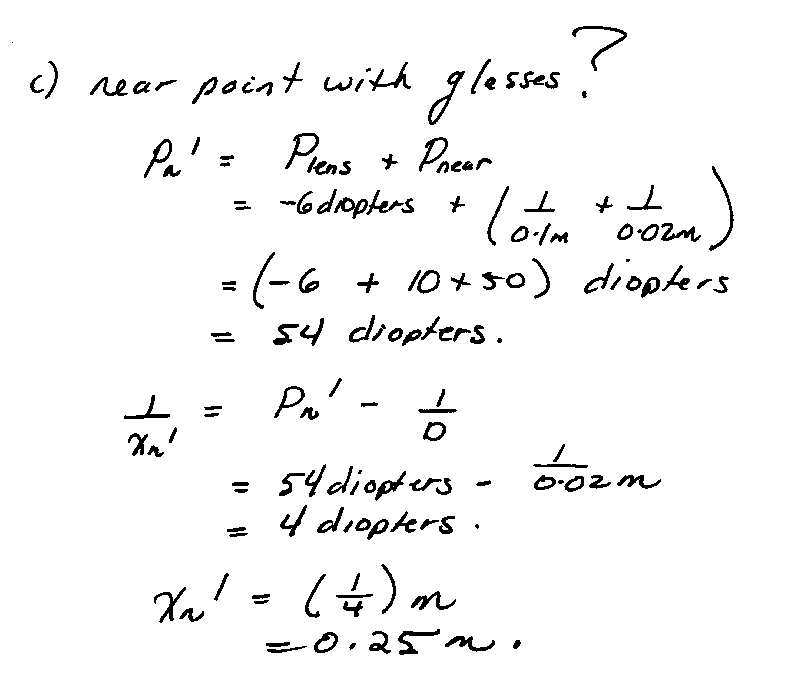 c) near point with glasses?
Pn' = Plens + Pnear
= -6 diopters + (1/0.1m + 1/0.02m)
= (-6 + 10 + 50) diopters
= 54 diopters.
1/xn' = Pn' - 1/D
= 54 diopters - 1/0.02m
= 4 diopters.
xn' = (1/4) m
= 0.25 m.